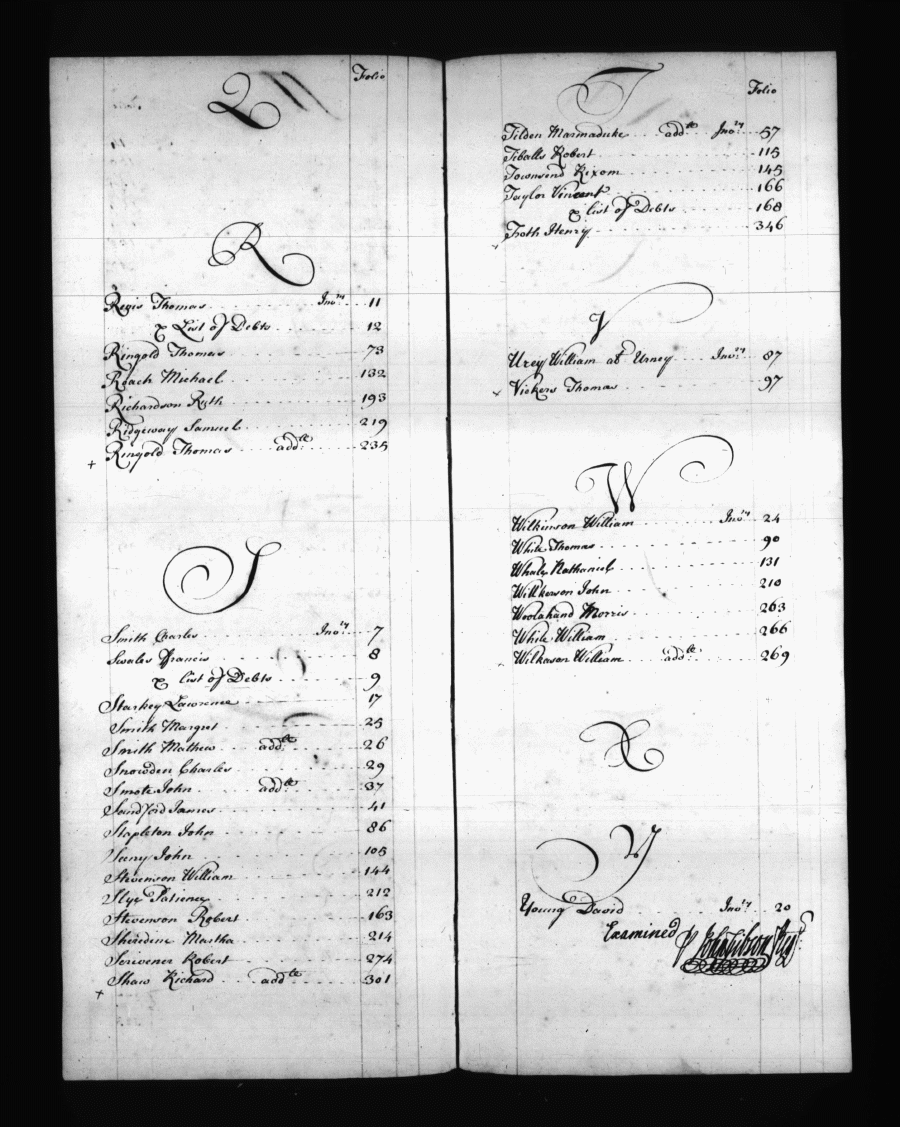 Folio
Q
R
Regis Thomas Invty 11
& List of Debts 12
Ringold Thomas 73
Roach Michael 132
Richardson Ruth 193
Ridgeway Samuel 219
+ Ringold Thomas addl 235
S
Smith Charles Invty 7
Swales Francis 8
& list of Debts 9
Starkey Lawrence 17
Smith Margret 25
Smith Mathew addl 26
Snowden Charles 29
Smote John addl 37
Sandford James 41
Stapleton John 86
John 105
Stevenson William 144
Slye Patience 212
Stevenson Robert 163
Sheredine Martha 214
Scrivener Robert 274
+ Shaw Richard addl 301
T
Folio
Tilden Marmaduke addl Invty 57
Tiballs Robert 115
Townsend Rixom 145
Taylor Vincent 166
& list of Debts 168
Troth Henry 346
V
Urey William at Urney Invty 87
Vickers Thomas 97
W
Wilkinson William Invty 24
White Thomas 90
Whale Nathaniel 131
Willkerson John 210
Woolahand Morris 263
White William 266
Wilkason William addl 269
X
Y
Young David Invty 20
Examined
P John Gibson Regr